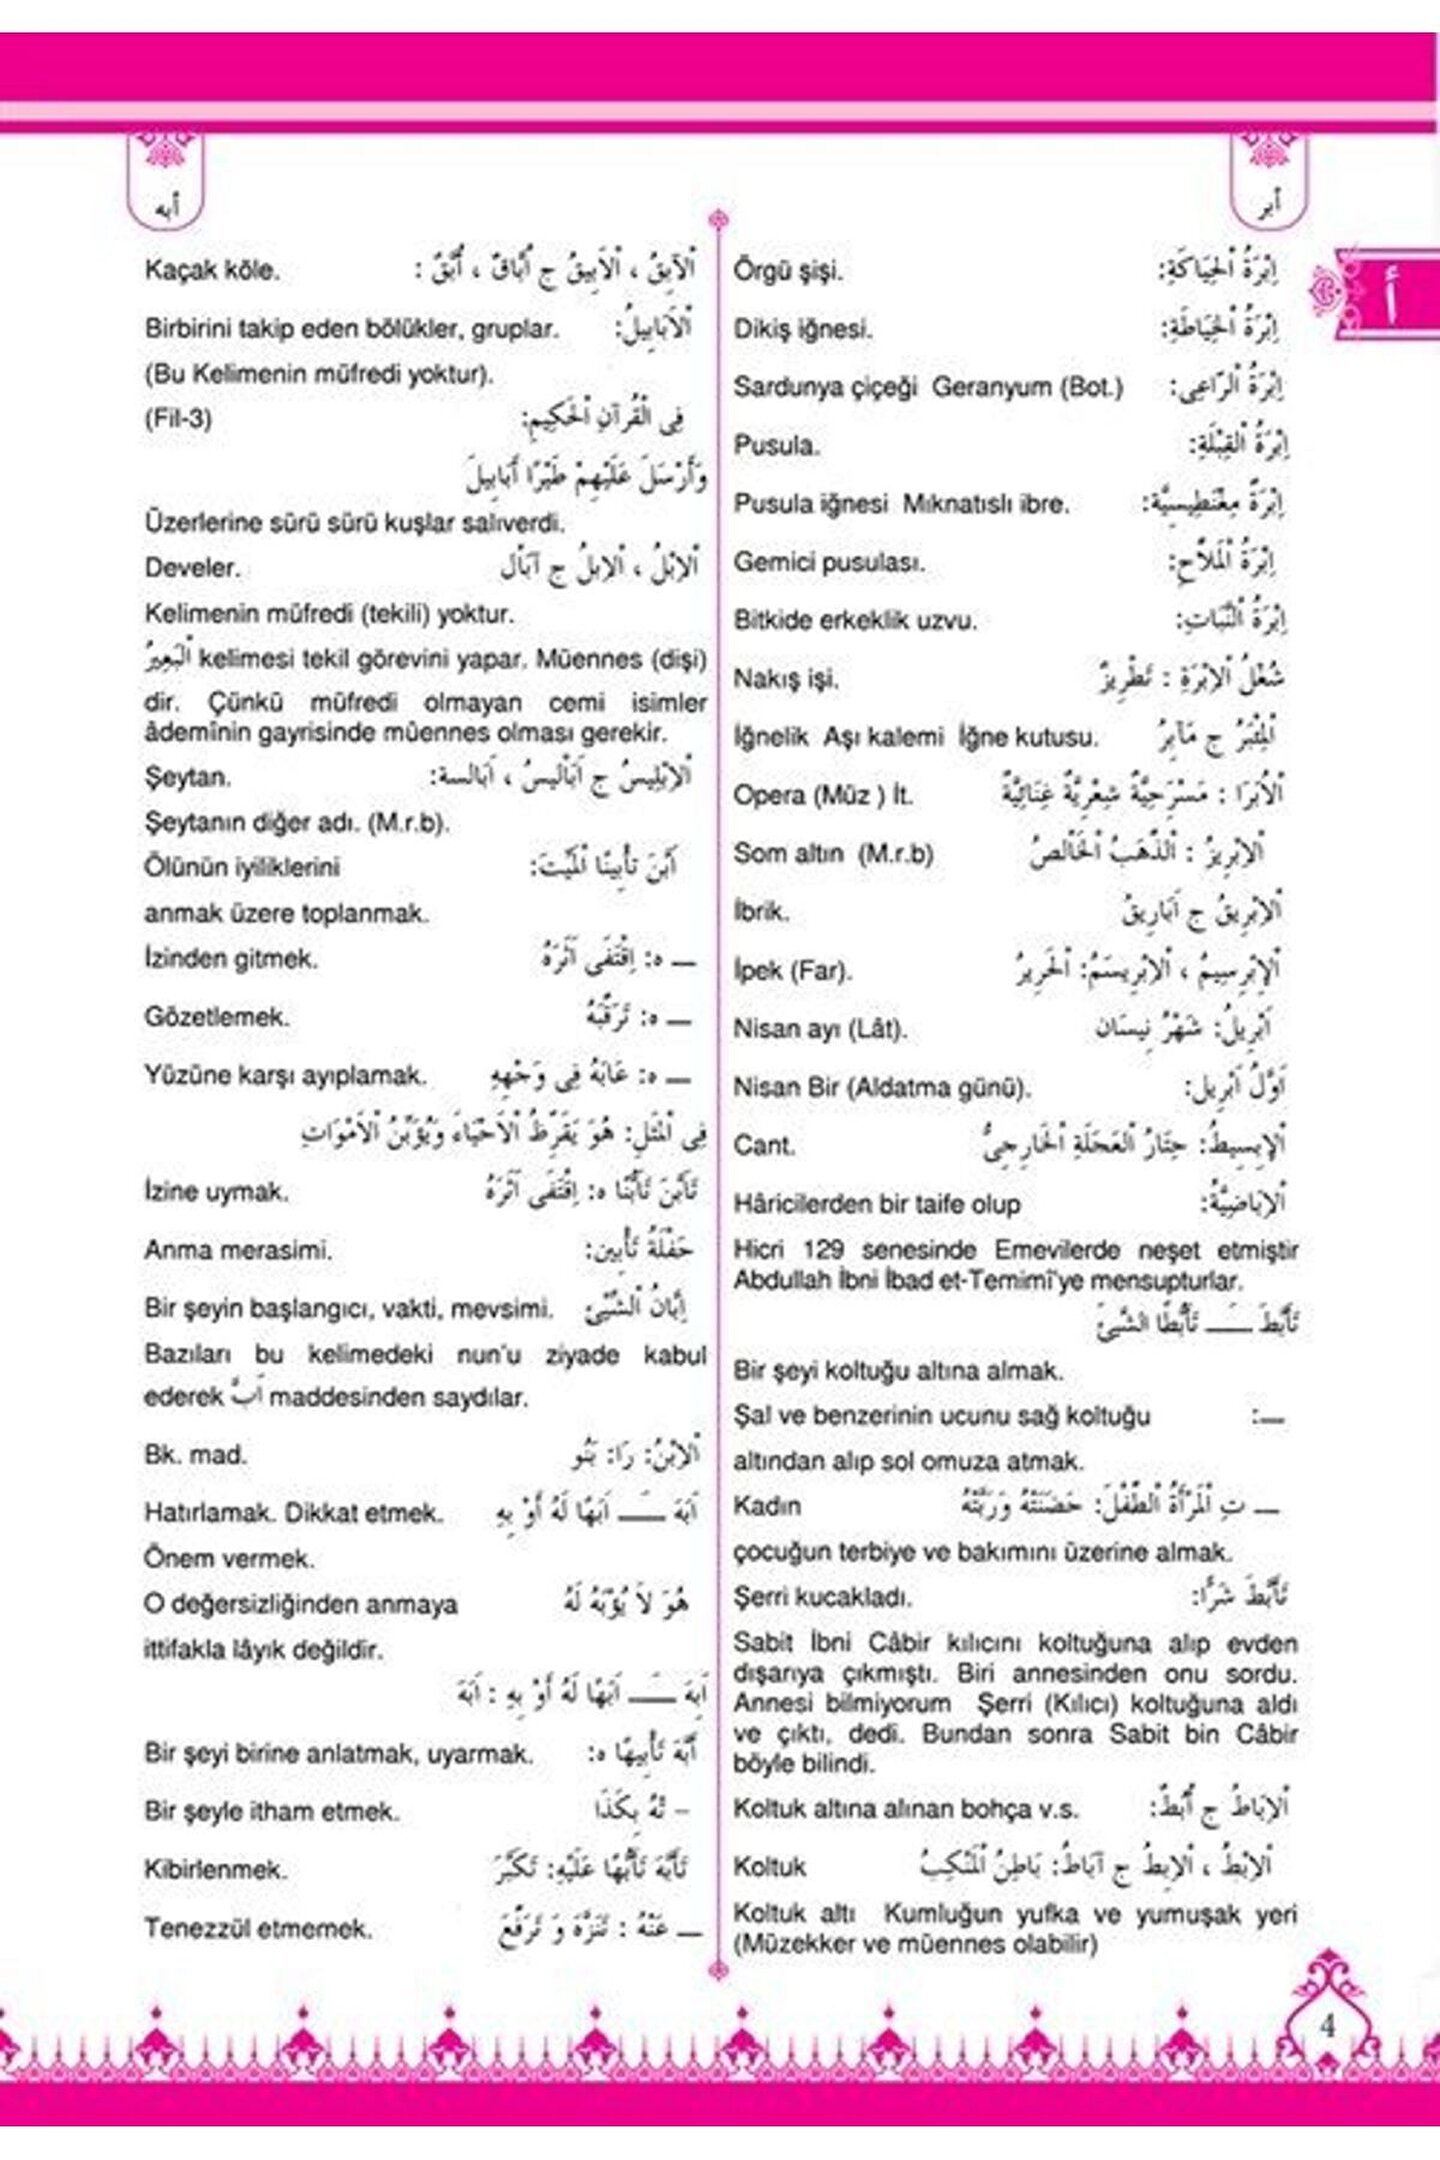 أبر
أبه
أ
Örgü şişi. اِبْرَةُ الْحِيَاكَةِ:
Dikiş iğnesi. اِبْرَةُ الْخِيَاطَةِ:
Sardunya çiçeği Geranyum (Bot.) اِبْرَةُ الرَّاعِى:
Pusula. اِبْرَةُ الْقِبْلَةِ:
Pusula iğnesi Mıknatıslı ibre. اِبْرَةٌ مِغْنَطِيسِيَّة:
Gemici pusulası. اِبْرَةُ الْمَلاَّحِ:
Bitkide erkeklik uzvu. اِبْرَةُ النَّبَاتِ:
Nakış işi. شُغْلُ الْاِبْرَةِ : تَطْرِيزٌ
İğnelik Aşı kalemi İğne kutusu. اَلْمِئْبَرُ ج مَآبِرُ
Opera (Müz ) İt. اَلْاُبَرَا : مَسْرَحِيَّةٌ شِعْرِيَّةٌ غِنَائِيَّةٌ
Som altın (M.r.b) اَلْاِبْرِيزُ : اَلذَّهَبُ الْخَالِصُ
İbrik. اَلْاِبْرِيقُ ج اَبَارِيقُ
İpek (Far). اَلْاِبْرِسِيمُ ، اَلْاِبْرِيسَمُ: اَلْحَرِيرُ
Nisan ayı (Lât). اَبْرِيلُ: شَهْرُ نِيسَان
Nisan Bir (Aldatma günü). اَوَّلُ اَبْرِيل:
Cant. اَلْاِبِسِيطُ: حِتَارُ الْعَجَلَةِ الْخَارِجِىُّ
Hâricilerden bir taife olup اَلْاِبَاضِيَّةُ:
Hicri 129 senesinde Emevilerde neşet etmiştir
Abdullah İbni İbad et-Temimî'ye mensupturlar.
تَأَبَّطَ ـــَـــ تَأَبُّطًا الشَّيْئَ
Bir şeyi koltuğu altına almak.
Şal ve benzerinin ucunu sağ koltuğu ـــ:
altından alıp sol omuza atmak.
Kadın ـــ تِ الْمَرْأَةُ الطِّفْلَ: حَضَنَتْهُ وَرَبَّتْهُ
çocuğun terbiye ve bakımını üzerine almak.
Şerri kucakladı. تَأَبَّطَ شَرًّا:
Sabit İbni Câbir kılıcını koltuğuna alıp evden
dışarıya çıkmıştı. Biri annesinden onu sordu.
Annesi bilmiyorum Şerri (Kılıcı) koltuğuna aldı
ve çıktı, dedi. Bundan sonra Sabit bin Câbir
böyle bilindi.
Koltuk altına alınan bohça v.s. اَلْاِبَاطُ ج اُبُطٌ:
Koltuk اَلْاِبْطُ ، اَلْاِبِطُ ج آبَاطُ: بَاطِنُ الْمَنْكِبُ
Koltuk altı Kumluğun yufka ve yumuşak yeri
(Müzekker ve müennes olabilir)
Kaçak köle. اَلْآبِقُ ، اَلْاَبِيقُ ج اُبَّاقٌ ، اُبَّقٌ :
Birbirini takip eden bölükler, gruplar. اَلْاَبَابِيلُ:
(Bu Kelimenin müfredi yoktur).
(Fil-3) فِى الْقُرْآنِ الْحَكِيمِ:
وَأَرْسَلَ عَلَيْهِمْ طَيْرًا أَبَابِيلَ
Üzerlerine sürü sürü kuşlar salıverdi.
Develer. اَلْاِبْلُ ، اَلْاِبِلُ ج آبَال
Kelimenin müfredi (tekili) yoktur.
اَلْبَعِيرُ kelimesi tekil görevini yapar. Müennes (dişi)
dir. Çünkü müfredi olmayan cemi isimler
âdemînin gayrisinde müennes olması gerekir.
Şeytan. اَلْاِبْلِيسُ ج اَبَالِيسُ ، اَبَالسة:
Şeytanın diğer adı. (M.r.b).
Ölünün iyiliklerini اَبَّنَ تَأْبِينًا الْمَيِّتَ:
anmak üzere toplanmak.
İzinden gitmek. ـــ ه: اِقْتَفَى اَثَرَهُ
Gözetlemek. ـــ ه: تَرَقَّبَهُ
Yüzüne karşı ayıplamak. ـــ ه: عَابَهُ فِى وَجْهِهِ
فِى الْمَثَلِ: هُوَ يُقَرِّظُ الْاَحْيَاءَ وَيُؤَبِّنُ الْاَمْوَاتِ
İzine uymak. تَأَبَّنَ تَأَبُّنًا ه: اِقْتَفَى اَثَرَهُ
Anma merasimi. حَفْلَةُ تَأْبِين:
Bir şeyin başlangıcı, vakti, mevsimi. اِبَّانُ الشَّيْئِ
Bazıları bu kelimedeki nun'u ziyade kabul
ederek اَبَّ maddesinden saydılar.
Bk. mad. اَلْاِبْنُ: رَا: بَنُو
Hatırlamak. Dikkat etmek. اَبَهَ ـــَـــ اَبَهًا لَهُ أَوْ بِهِ
Önem vermek.
O değersizliğinden anmaya هُوَ لاَ يُؤْبَهُ لَهُ
ittifakla lâyık değildir.
اَبِهَ ـــَـــ اَبَهًا لَهُ أَوْ بِهِ : اَبَهَ
Bir şeyi birine anlatmak, uyarmak. اَبَّهَ تَأْبِيهًا ه:
Bir şeyle itham etmek. – ـهُ بِكَذَا
Kibirlenmek. تَأَبَّهَ تَأَبُّهًا عَلَيْهِ: تَكَبَّرَ
Tenezzül etmemek. ـــ عَنْهُ : تَنَزَّهَ وَ تَرَفَّعَ
4